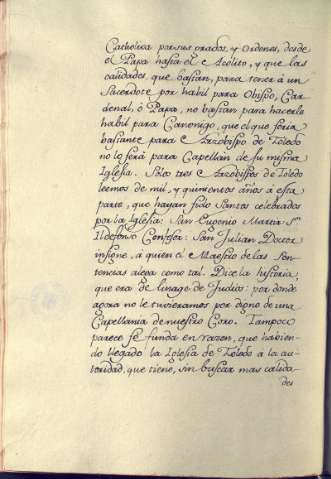 Catholica por sus grados, y Ordenes, desde
el Papa hasta el Acolito, y que las
calidades, que bastan, para tener à un
Sacerdote por habil para Obispo, Car-
denal, ò Papa, no bastan para hacerle
habil para Canonigo, que el que seria
bastante para Arzobispo de Toledo
no lo será para Capellan de su misma
Iglesia. Solo tres Arzobispos de Toledo
leemos de mil, y quinientos años à esta
parte, que hayan sido Santos celebrados
por la Iglesia: San Eugenio Martir Sn.
Ildefonso Confesor: San Julian Doctor
insigne, à quien el Maestro de las Sen-
tencias alega como tal. Dice la historia,
que era de linage de Judios: por donde
agora no le tuvieramos por digno de una
Capellania de nuestro Coro. Tampoco
parece se funda en razon, que habien-
do llegado la Iglesia de Toledo a la au-
toridad, que tiene, sin buscar mas calida-
des